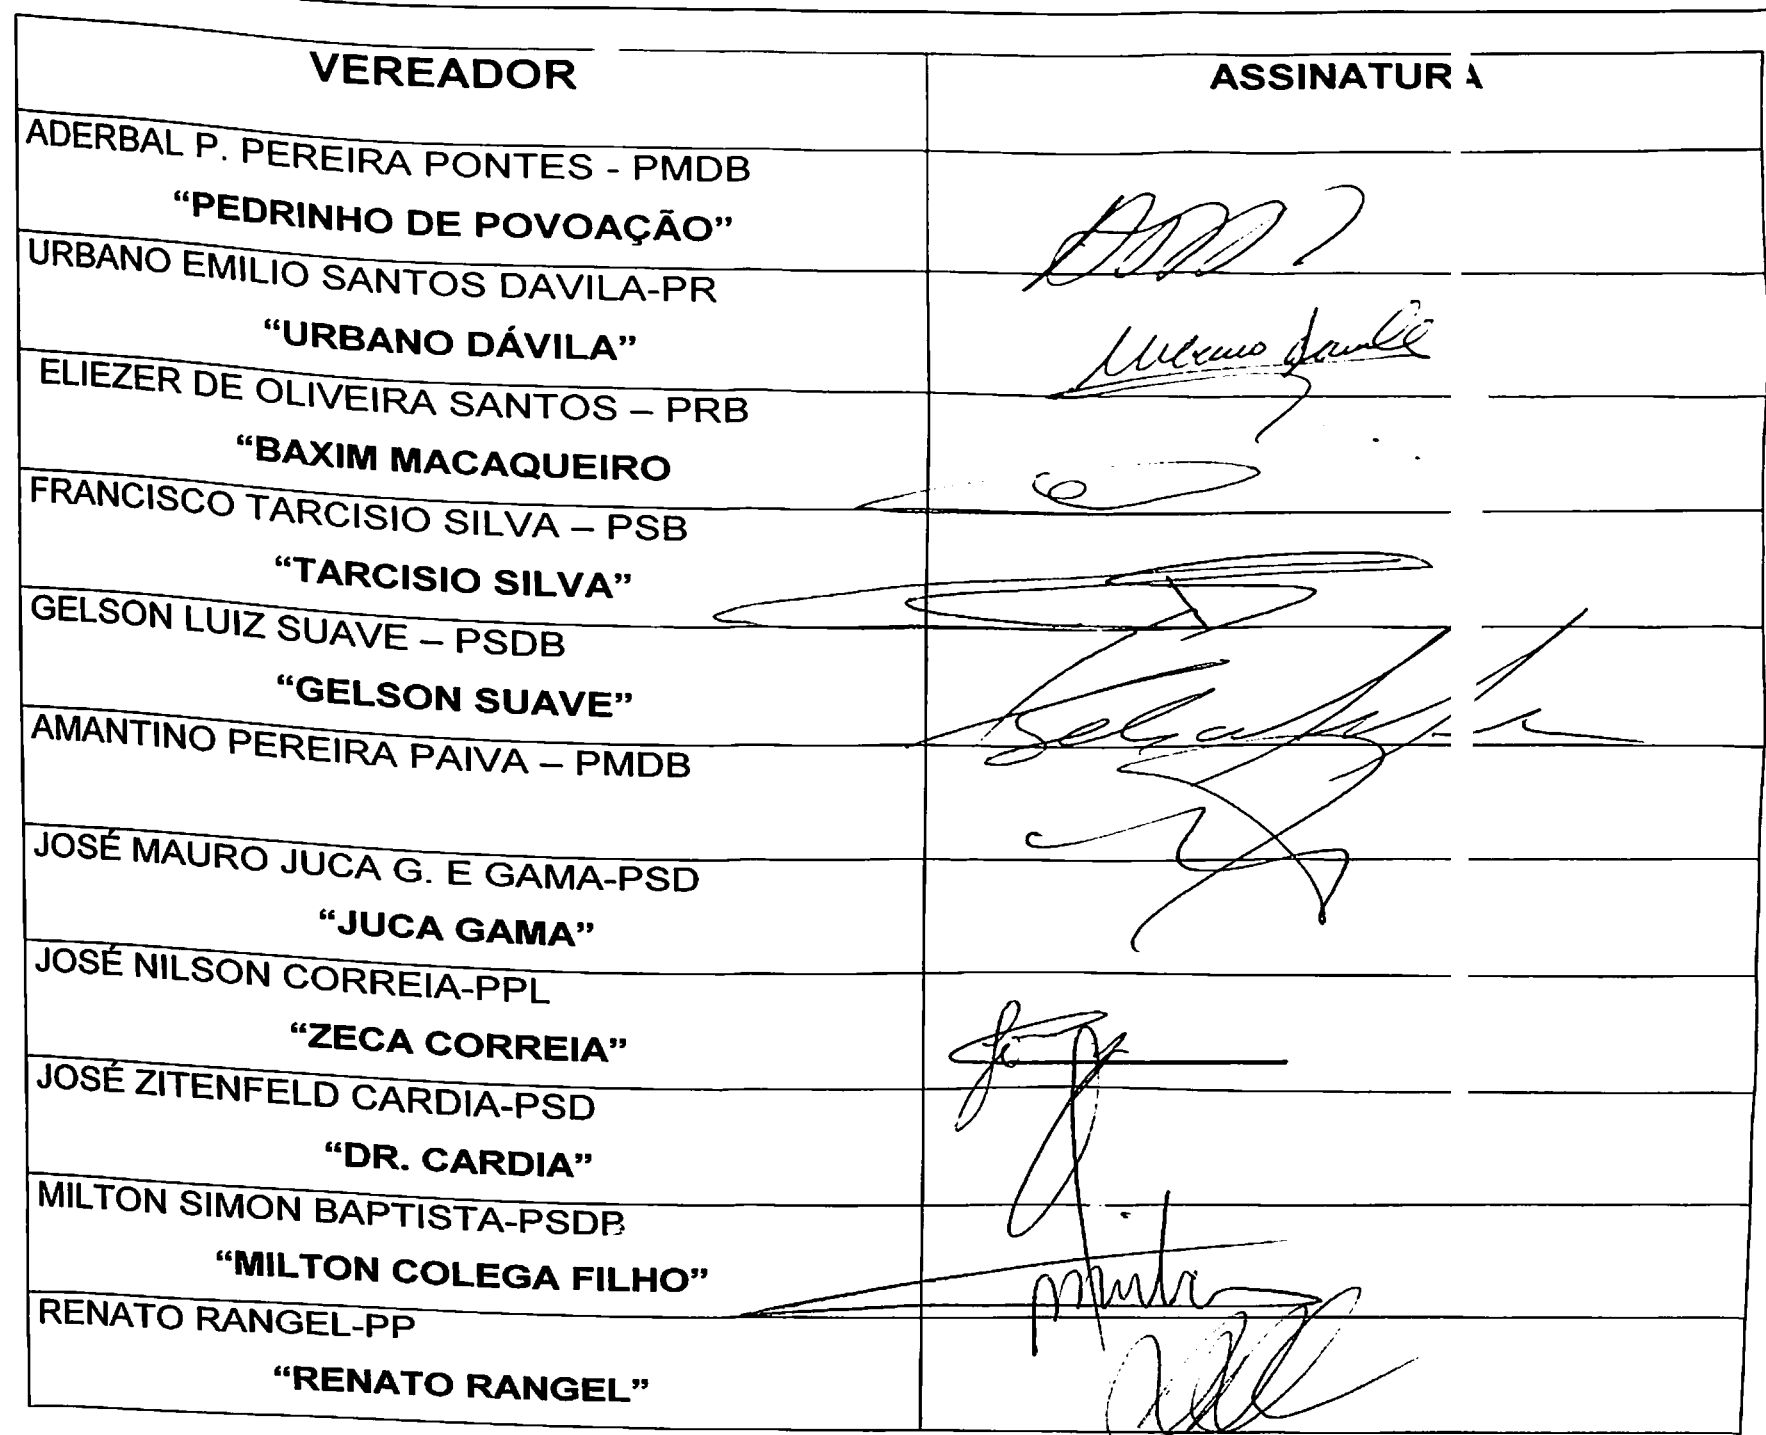 VEREADOR
ASSINATURA
ADERBAL P. PEREIRA PONTES - PMDB
“PEDRINHO DE POVOAÇÃO”
URBANO EMILIO SANTOS DAVILA-PR
“URBANO DÁVILA”
ELIEZER DE OLIVEIRA SANTOS – PRB
“BAXIM MACAQUEIRO
FRANCISCO TARCISIO SILVA – PSB
“TARCISIO SILVA”
GELSON LUIZ SUAVE – PSDB
“GELSON SUAVE”
AMANTINO PEREIRA PAIVA – PMDB
JOSÉ MAURO JUCA G. E GAMA-PSD
“JUCA GAMA”
JOSÉ NILSON CORREIA-PPL
“ZECA CORREIA”
JOSÉ ZITENFELD CARDIA-PSD
“DR. CARDIA”
MILTON SIMON BAPTISTA-PSDB
“MILTON COLEGA FILHO”
RENATO RANGEL-PP
“RENATO RANGEL”